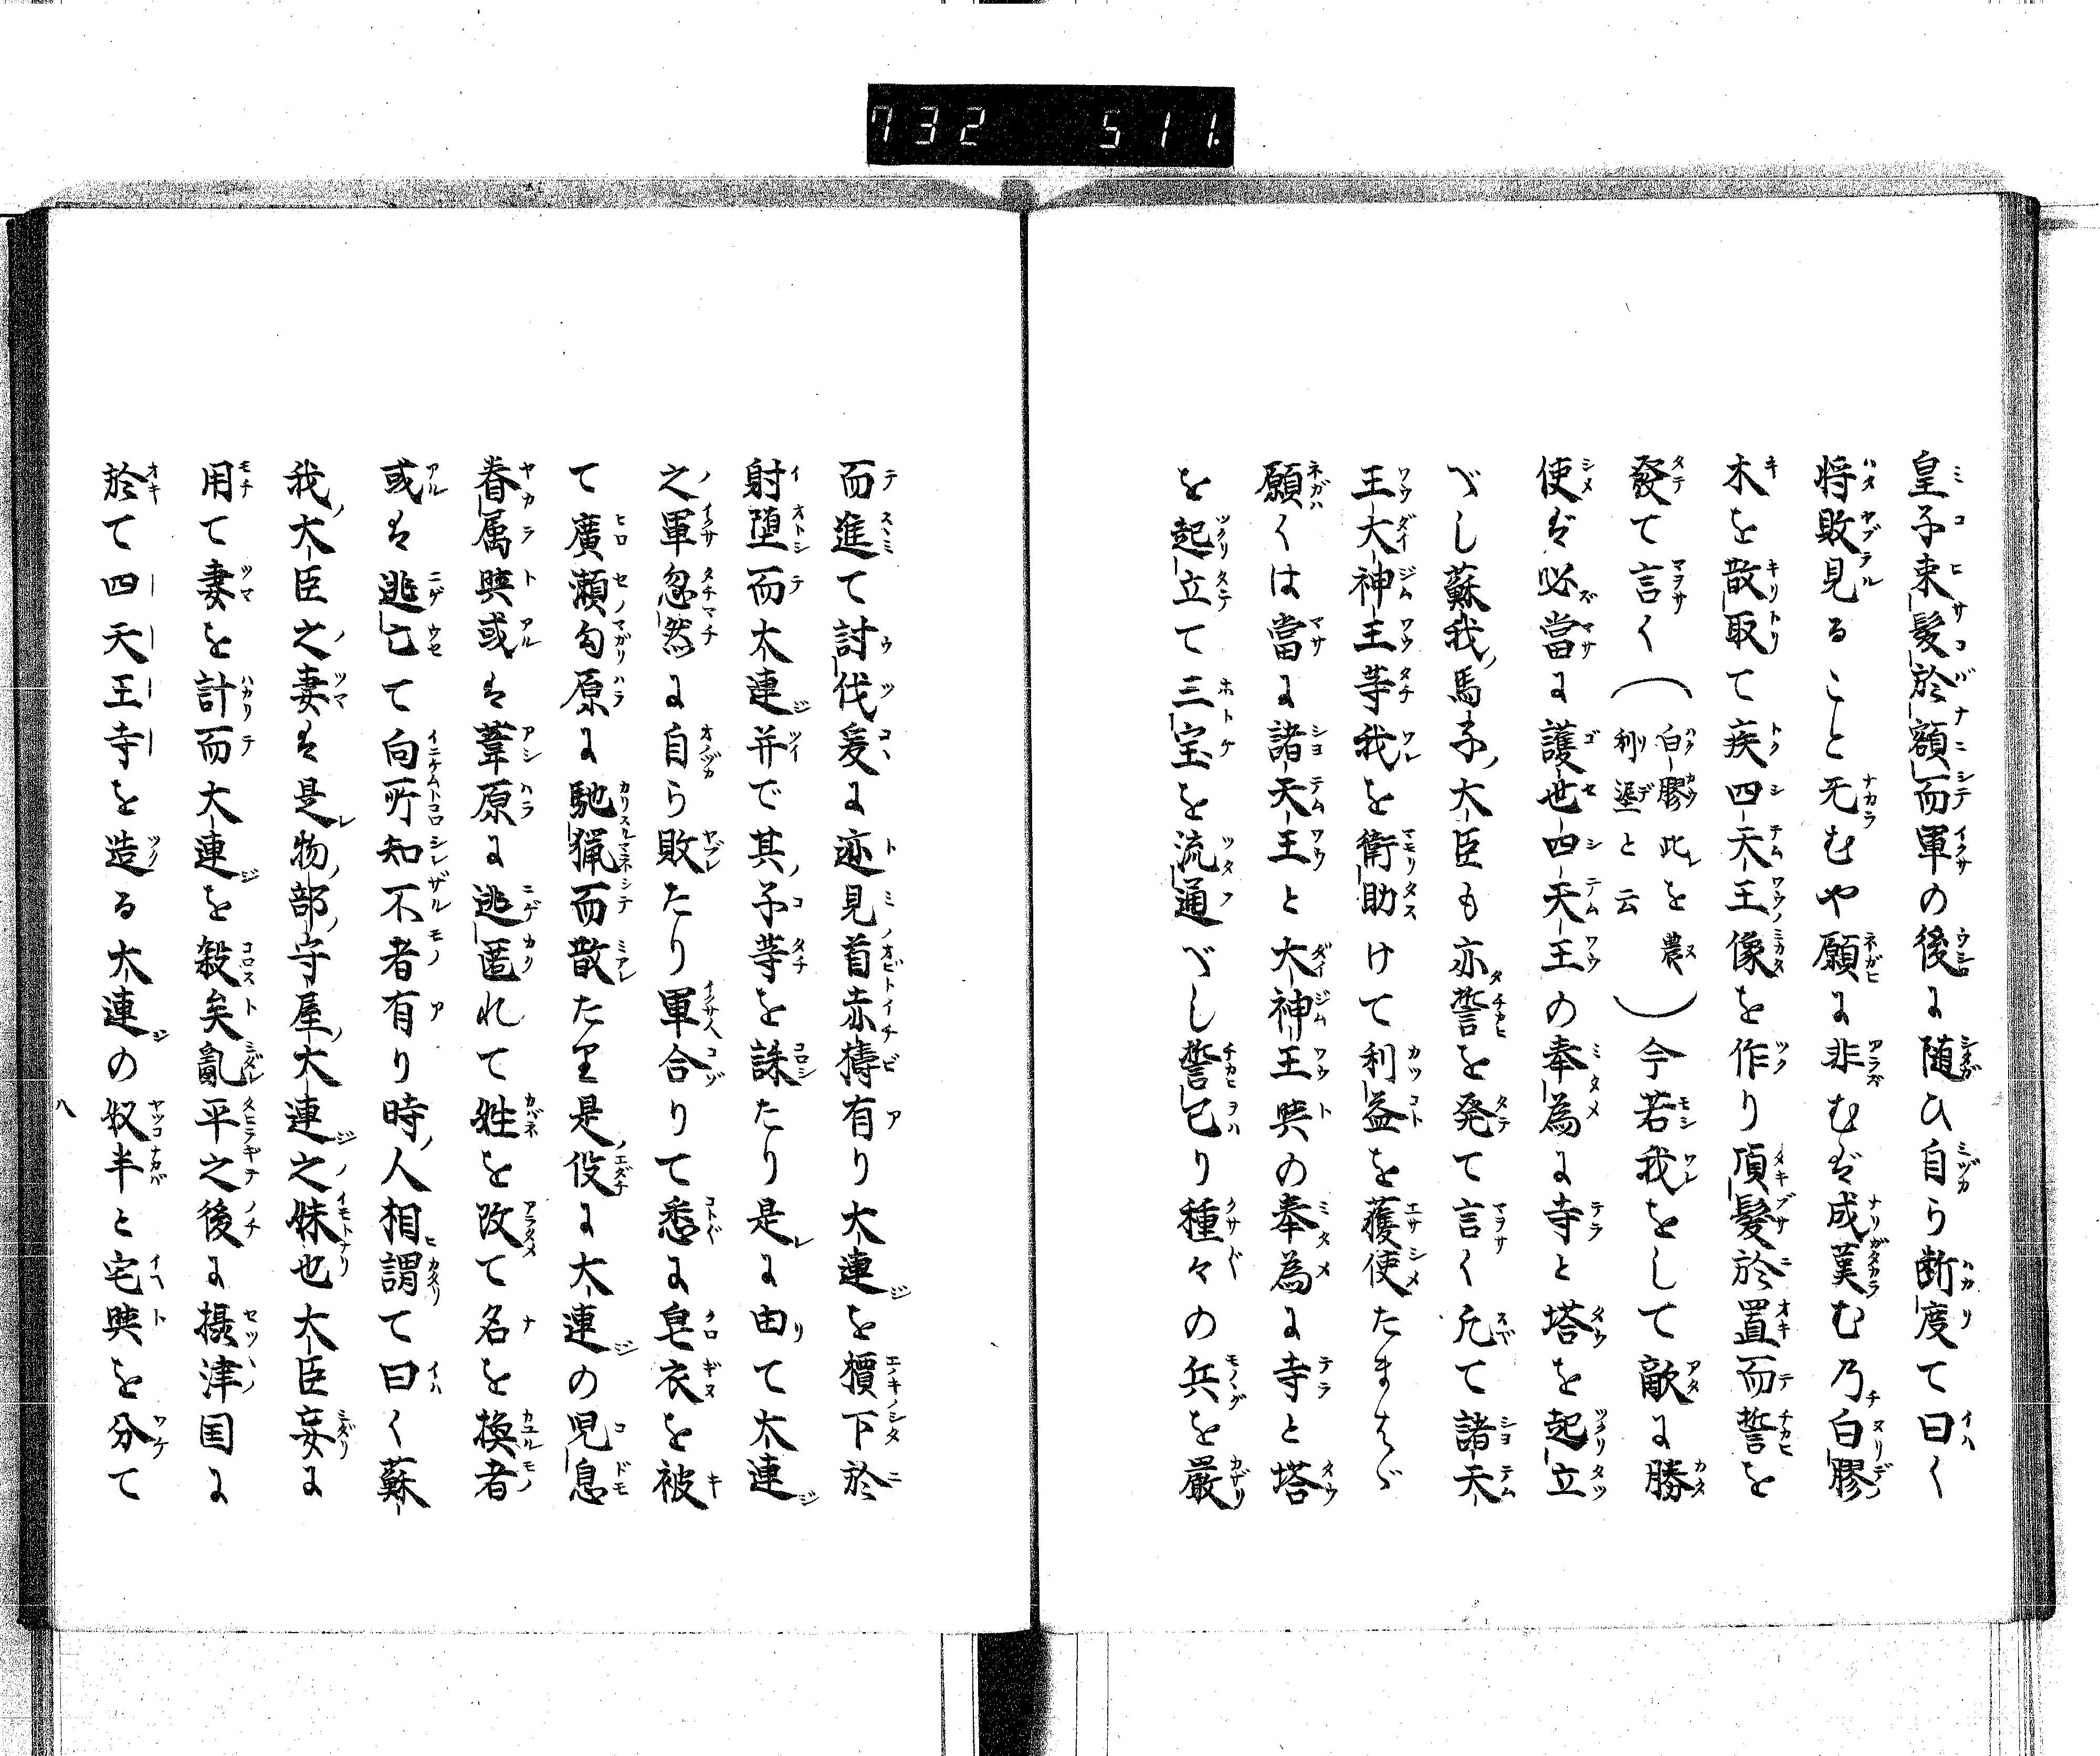 732 511.
皇子束髪於額而軍の後に随ひ自ら断度て曰く
将敗見ること无むや願に非むば成㕟む乃白膠
木を㪚取て疾四天王像を作り頂髪於置而誓を
發て言く（白膠此を農利埿と云）今若我をして敵に勝
使ば必當に護世四天王の奉為に寺と塔を起立
べし蘇我馬子大臣も亦誓を発て言く凢て諸天
王大神王等我を衛助けて利益を獲使たまはゞ
願くは當に諸天王と大神王與の奉為に寺と塔
を起立て三宝を流通べし誓已り種々の兵を厳
而進て討伐爰に迹見首赤檮有り大連を横下於
射堕而大連并で其子等を誅たり是に由て大連
之軍忽然に自ら敗たり軍合りて悉に皂衣を被
て廣瀬勾原に馳猟而散たり是役に大連の児息
眷属與或は葦原に逃匿れて姓を改て名を換者
或は逃亡て向所知不者有り時人相謂て曰く蘇
我大臣之妻は是物部守屋大連之妹也大臣妄に
用て妻を計而大連を殺矣亂平之後に摂津国に
於て四天王寺を造る大連の奴半と宅與を分て
八